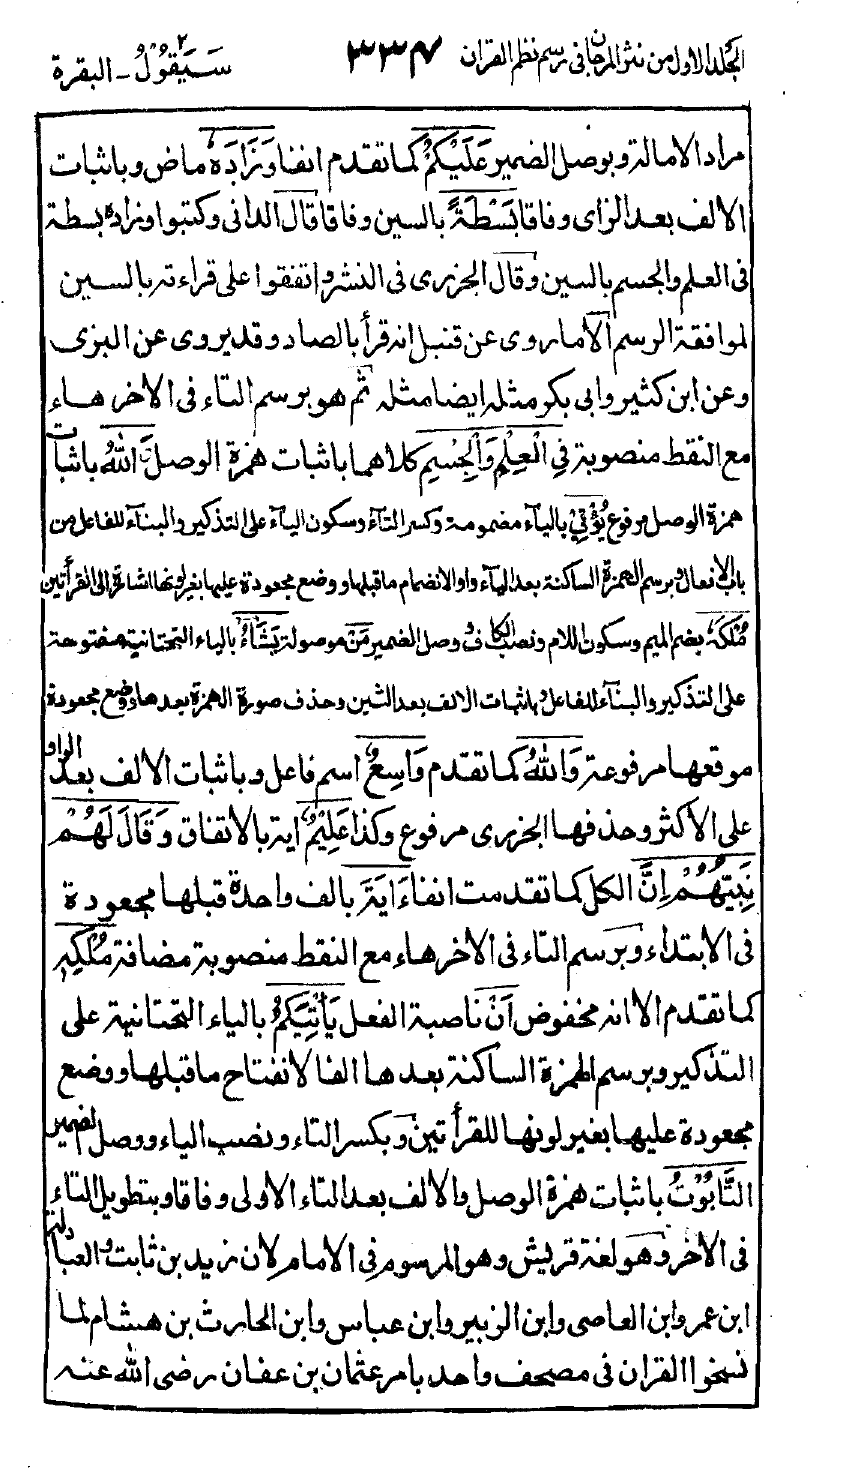 المجلد الاول من نثر المرجان في رسم نظم القران ٣٣٧ سَيَقُوْلُ ٢ - البقرة
مراد الامالة وبوصل الضمير عَلَيْكُمْ كما تقدم انفا وَزَادَهٗ ماض وباثبات
الالف بعد الزاى وفاقا بَسْطَةً بالسين وفاقا قال الدانى وكتبوا وزاده بسطة
فى العلم والجسم بالسين وقال الجزرى فى النشر واتفقوا على قراءته بالسين
لموافقة الرسم الا ما روى عن قنبل انه قرأ بالصاد وقد يروى عن البزى
وعن ابن كثير وابى بكر مثله ايضا مثله ثم هو برسم التاء فى الاخر هاء
مع النقط منصوبة فِي الْعِلْمِ وَالْجِسْمِ كلاهما باثبات همزة الوصل وَاللّٰهُ باثبات
همزة الوصل مرفوع يُؤْتِيْ بالياء مضمومة وكسر التاء وسكون الياء على التذكير والبناء للفاعل من
باب الافعال وبرسم الهمزة الساكنة بعد الياء واوا لانضمام ما قبلها ووضع مجعودة عليها بغير لونها اشارة الى القرأتين
مُلْكَهٗ بضم الميم وسكون اللام ونصب الكاف ووصل الضمير مَنْ موصولة يَشَآءُ بالياء التحتانية مفتوحة
على التذكير والبناء للفاعل وباثبات الالف بعد الشين وحذف صورة الهمزة بعدها ووضع مجعودة
موقعها مرفوعة وَاللّٰهُ كما تقدم وَاسِعٌ اسم فاعل وباثبات الالف بعد الواو
على الاكثر وحذفها الجزرى مرفوع وكذا عَلِيْمٌ اية بالاتفاق وَقَالَ لَهُمْ
نَبِيُّهُمْ اِنَّ الكل كما تقدمت انفا ءَايَةَ بالف واحدة قبلها مجعودة
فى الابتداء وبرسم التاء فى الاخر هاء مع النقط منصوبة مضافة مُلْكِهٖ
كما تقدم الا انه مخفوض اَنْ ناصبة الفعل يَاْتِيَكُمْ بالياء التحتانية على
التذكير وبرسم الهمزة الساكنة بعدها الفا لانفتاح ما قبلها ووضع
مجعودة عليها بغير لونها للقرأتين وبكسر التاء ونصب الياء ووصل الضمير
التَّابُوْتُ باثبات همزة الوصل والالف بعد التاء الاولى وفاقا وبتطويل التاء
فى الاخر وهو لغة قريش وهو المرسوم فى الامام لان زيد بن ثابت والعبادلة
ابن عمر وابن العاصى وابن الزبير وابن عباس وابن الحارث بن هشام لما
نسخوا القران فى مصحف واحد بامر عثمان بن عفان رضى الله عنه